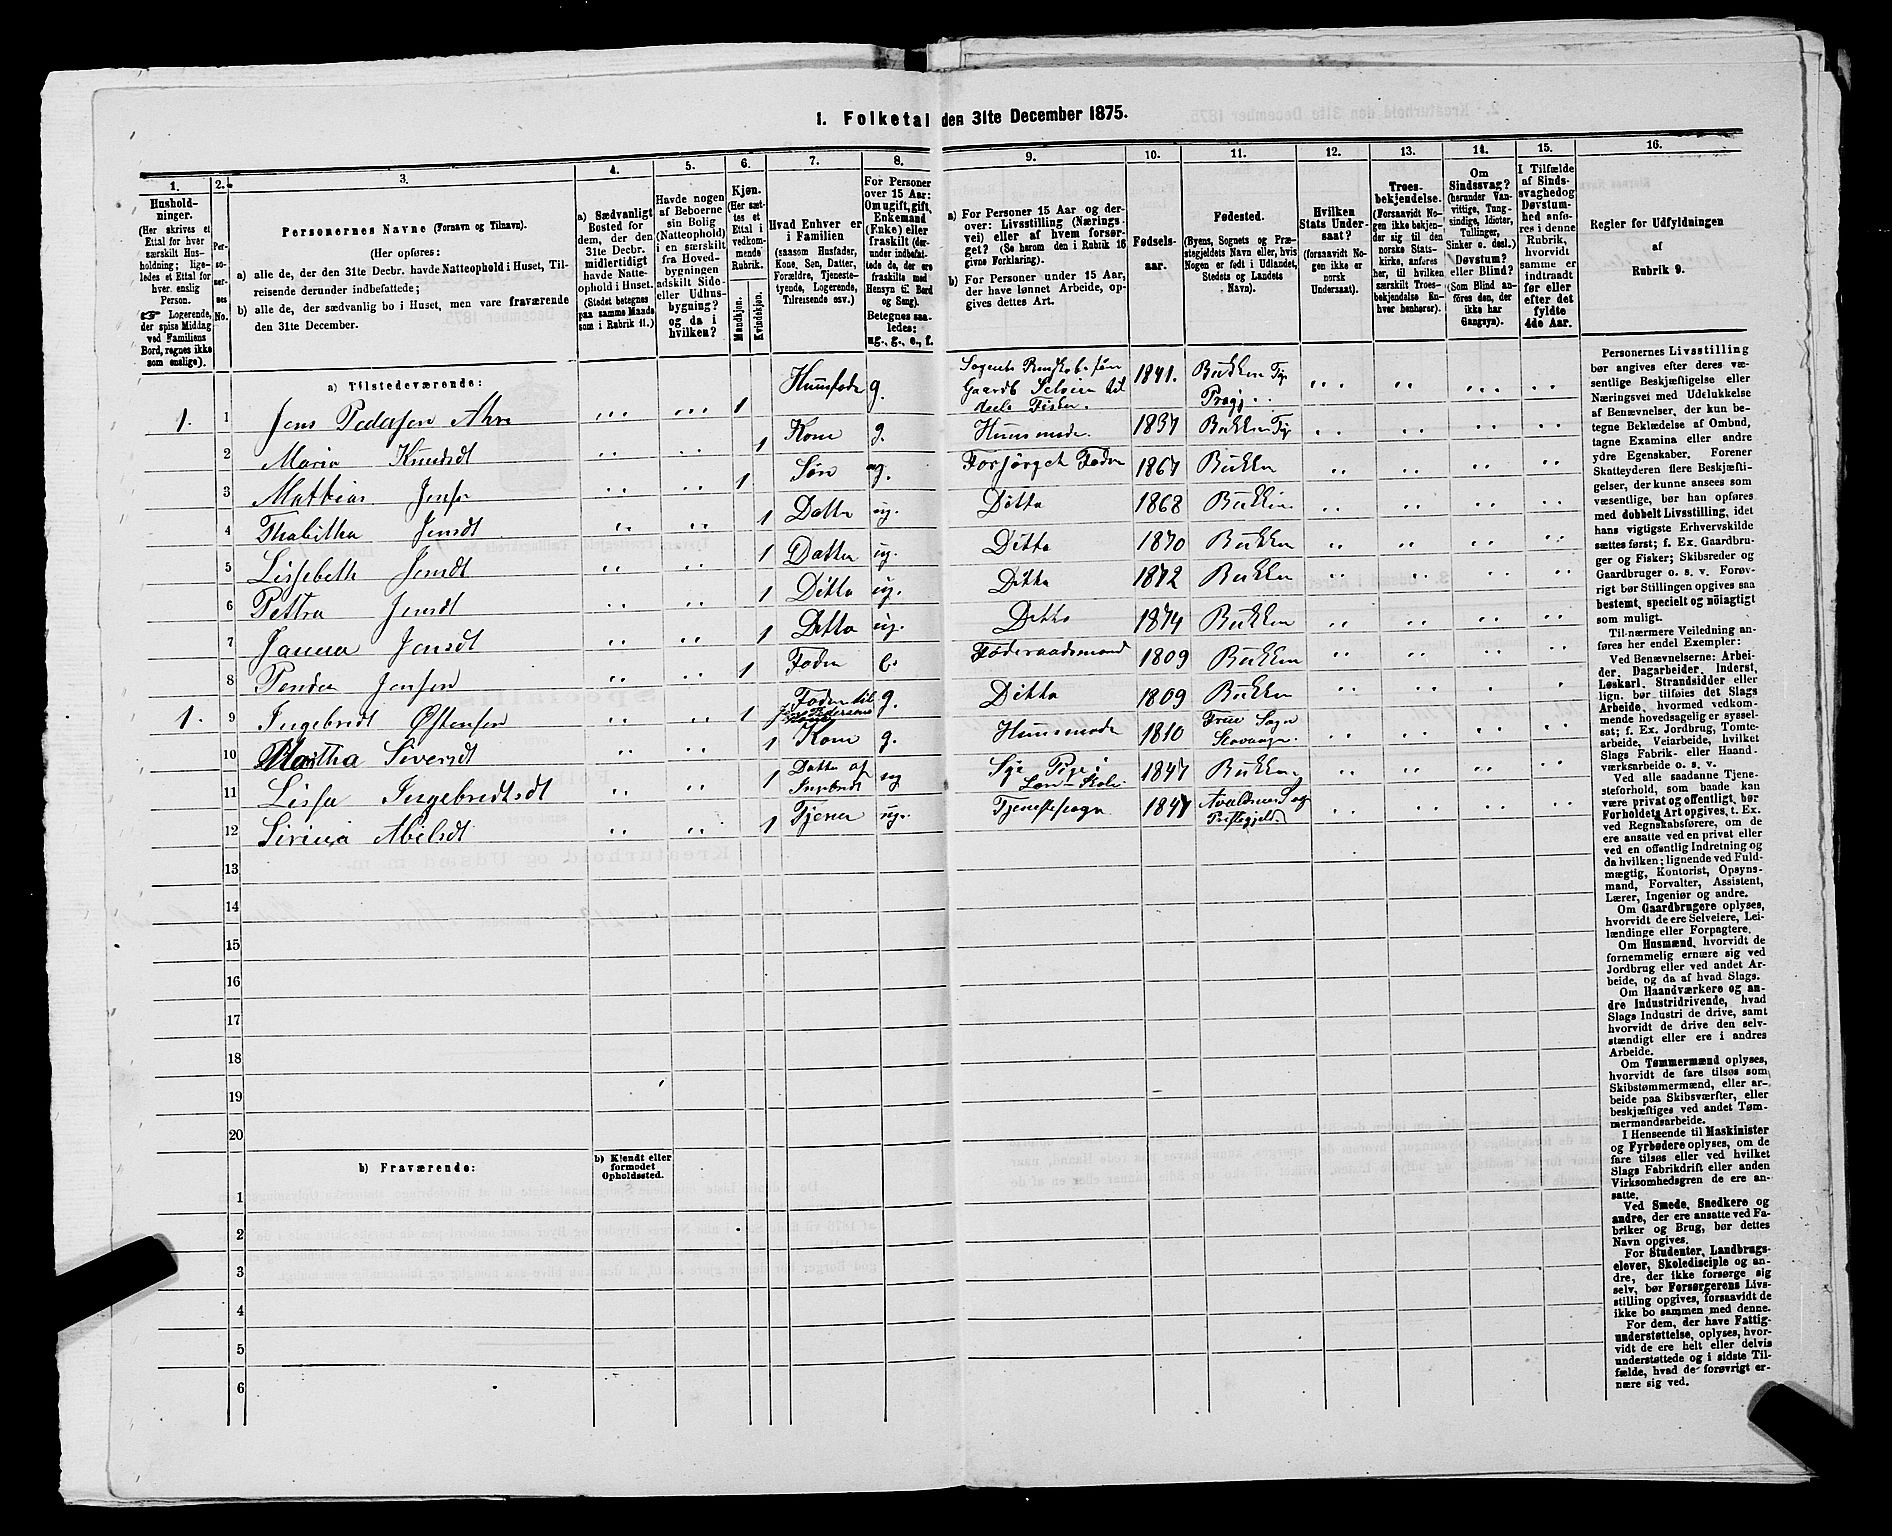 1. Folketal den 31te December 1875.
1. 2. 3. 4. 5. 6. 7. 8. 9. 10. 11. 12. 13. 14. 15. 16.
Husholdninger.
(Her skrives et
Ettal for hver
særskilt Husholdning;
ligeledes et Ettal for
hver. enslig
Person.
Logerende,
der spise Middag
ved Familiens
Bord, regnes ikke
som enslige).
Personernes No.
Personernes Navne (Fornavn og Tilnavn).
(Her opføres:
a) alle de, der den 31te Decbr. havde Natteophold i Huset, Tilreisende
derunder indbefattede;
b) alle de, der sædvanlig bo i Huset, men vare fraværende
den 31te December.
a) Sædvanligt
Bosted for
dem, der den
31te Decbr.
midlertidigt
havde Natteophold
i Huset.
(Stedet betegnes
paa samme Maade
som i Rubrik 11.)
Havde nogen
af Beboerne
sin Bolig
(Natteophold)
i en særskilt
fra Hovedbygningen
adskilt Side-
eller Udhusbygning?
og da i
hvilken?
Kjøn.
(Her sættes
et
Ettal i
vedkommende
Rubrik.
Mandkjøn.
Kvindekjøn.
Hvad Enhver er
i Familien
(saasom Husfader,
Kone, Søn, Datter,
Forældre, Tjenestetyende,
Logerende,
Tilreisende osv.)
For Personer
over 15 Aar:
Om ugift, gift,
Enkemand
(Enke) eller
fraskilt (derunder
indbefattede de, der ere
fraskilte med
Hensyn til Bord
og Seng).
Betegnes saaledes:
ug., g., e., f.
a) For Personer 15 Aar og derover:
Livsstilling (Næringsvei)
eller af hvem forsørget?
(Se herom den i Rubrik 16
givne Forklaring).
b) For Personer under 15 Aar,
der have lønnet Arbeide, opgives
dettes Art.
Fødselsaar.
Fødested.
(Byens, Sognets og Præstegjeldets
Navn eller, hvis
Nogen er født i Udlandet,
Stedets og Landets
Navn).
Hvilken
Stats Undersaat?
(forsaavidt Nogen
ikke er
norsk
Undersaat).
Troesbekjendelse.
(Forsaavidt Nogen
ikke bekjender
sig til den
norske Statskirke,
anføres
her, til hvilken
særskilt Troesbekjendelse
Enhver
benhører).
Om
Sindssvag?
(herunder Vanvittige,
Tungsindige,
Idioter,
Tullinger,
Sinker o. desl.)
Døvstum?
eller Blind?
(Som Blind anføres
den, der
ikke har
Gangsyn).
I Tilfælde
af Sindssvaghed
og
Døvstumhed
anføres
i denne
Rubrik,
hvorvidt
samme er
indtraadt
før eller
efter det
fyldte
4de Aar.
Regler for Udfyldningen
af
Rubrik 9.
a) Tilstedeværende:
1. 1 Jens Pedersen 1 g. Fisker. 1841. Bukken
2 Maria Knudsdt 1 Kone g. Huusmode. 1837 Bukken
3 Mathias Jensen 1 Søn ug. Forsørget Fader 1867 Bukken
4 Thabitha Jensdt 1 Datter ug. Ditto 1868 Bukken
5 Lissebeth Jensdt 1 Datter ug. Ditto 1870 Bukken
6 Pettra Jensdt 1 Ditto ug. Ditto 1872 Bukken
7 Janna Jensdt 1 Ditto ug. Ditto 1874 Bukken
8 Peder Jensen 1 Fader e. Føderaadsmand 1809 Bukken
1. 9 Ingebridt Østensen 1 Fader til Jens Pedersens Kone g. Ditto 1809 Bukken
10 Martha Siversdt 1 Kone g. Huusmode 1810 Sogn
11 Lissa Ingebridtsdt 1 Datter af Ingebridt ug Sye Pige 1847 Bukken
12 Sirina Abelsdt 1 Tjener ug. 1847 Avaldsnes Sogn
13
14
15
16
17
18
19
20
b) Fraværende:
b) Kjendt eller
formodet
Opholdssted.
1
2
3
4
5
6
Personernes Livsstilling
bør angives efter deres væsentlige
Beskjæftigelse eller
Næringsvei med Udelukkelse
af Benævnelser, der kun betegne
Beklædelse af Ombud,
tagne Examina eller andre
ydre Egenskaber. Forener
Skatteyderen flere Beskjæftigelser,
der kunne ansees som
væsentlige, bør han opføres
med dobbelt Livsstilling, idet
hans vigtigste Erhvervskilde
sættes først; f. Ex. Gaardbruger
og Fisker; Skibsreder og
Gaardbruger o. s. v. Forøvrigt
bør Stillingen opgives saa
bestemt, specielt og nöiagtigt
som muligt.
Til nærmere Veiledning anføres
her endel Exempler:
Ved Benævnelserne: Arbeider,
Dagarbeider, Inderst,
Løskarl, Strandsidder eller
lign. bør tilføies det Slags
Arbeide, hvormed vedkommende
hovedsagelig er sysselsat;
f. Ex. Jordbrug, Tomtearbeide,
Veiarbeide, hvilket
Slags Fabrik- eller Haandværksarbeide
o. s. v.
Ved alle saadanne Tjenesteforhold,
som baade kan
være privat og offentligt, bør
Forholdets Art opgives, t. Ex.
ved Regnskabsførere, om de
ere ansatte ved en privat eller
ved en offentlig Indretning og
da hvilken; lignende ved Fuldmægtig,
Kontorist, Opsynsmand,
Forvalter, Assistent,
Lærer, Ingeniør og andre.
Om Gaardbrugere oplyses,
hvorvidt de ere Selveiere, Leilændinge
eller Forpagtere.
Om Husmænd, hvorvidt de
fornemmelig ernære sig ved
Jordbrug eller ved andet Arbeide,
og da af hvad Slags.
Om Haandværkere og andre
Industridrivende, hvad
Slags Industri de drive, samt
hvorvidt de drive den selvstændigt
eller ere i andres
Arbeide.
Om Tømmermænd oplyses,
hvorvidt de fare tilsøs som
Skibstømmermænd, eller arbeide
paa Skibsværfter, eller
beskjæftiges ved andet Tømmermandsarbeide.
I Henseende til Maskinister
og Fyrbødere oplyses, om de
fare tilsøs eller ved hvilket
Slags Fabrikdrift eller anden
Virksomhedsgren de ere ansatte.
Ved Smede, Snedkere og
andre, der ere ansatte ved Fabriker
og Brug, bør dettes
Navn opgives.
For Studenter, Landbrugselever,
Skoledisciple og andre,
der ikke forsørge sig
selv, bør Forsørgerens Livsstilling
opgives, forsaavidt de
ikke bo sammen med denne.
For dem, der have Fattigunderstøttelse,
oplyses, hvorvidt
de ere helt eller delvis
understøttede og i sidste Tilfælde,
hvad de forøvrigt ernære
sig ved.